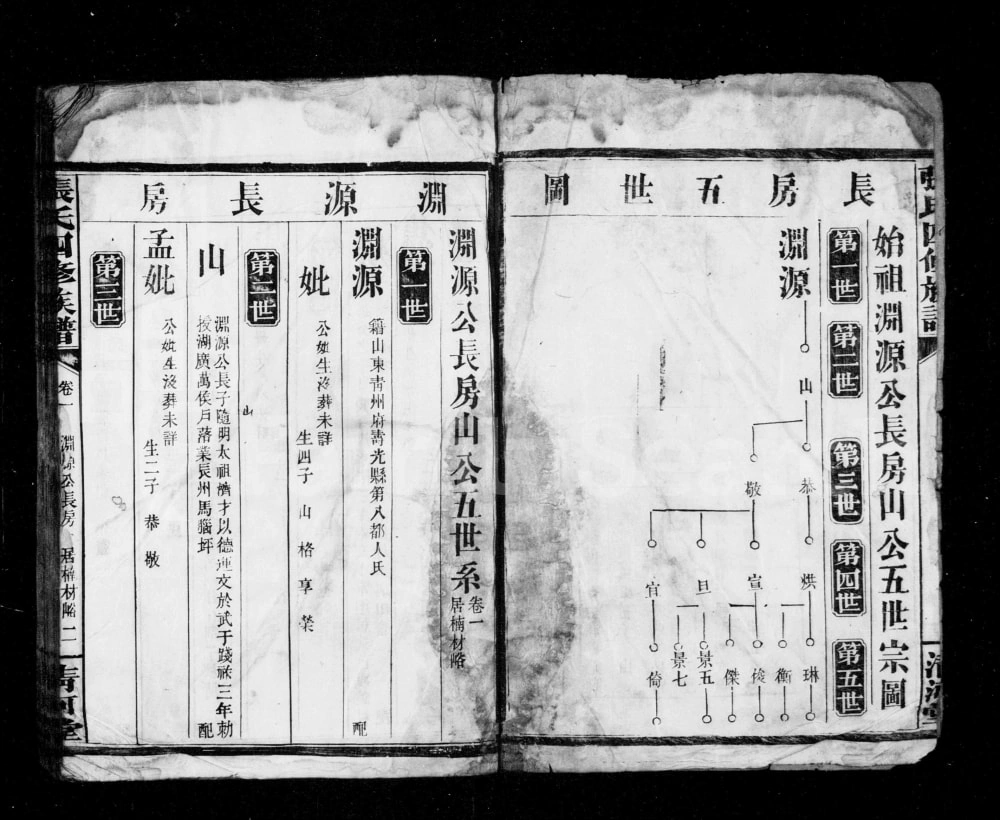 長房五世圖
始祖淵源公長房山公五世宗圖
第一世
第二世
第三世
第四世
第五世
淵源
山
恭
敬
烘
宣
旦
官
琳
衡
俊
傑
景五
景七
倚
淵源長房
淵源公長房山公五世系
卷一
居楠材略
第一世
淵源
籍山東青州府壽光縣第八都人氏
配
妣
公妣生沒葬未詳
生四子 山 格 享 榮
第二世
山
淵源公長子隨明太祖濟才以德連文於武于踐祿三年勅
授湖廣萬侯戶落業辰州馬貓坪
配
山
孟妣
公妣生沒葬未詳
生二子 恭 敬
第三世
張氏四修族譜
卷一
淵源公長房
居楠材略
二
清河堂